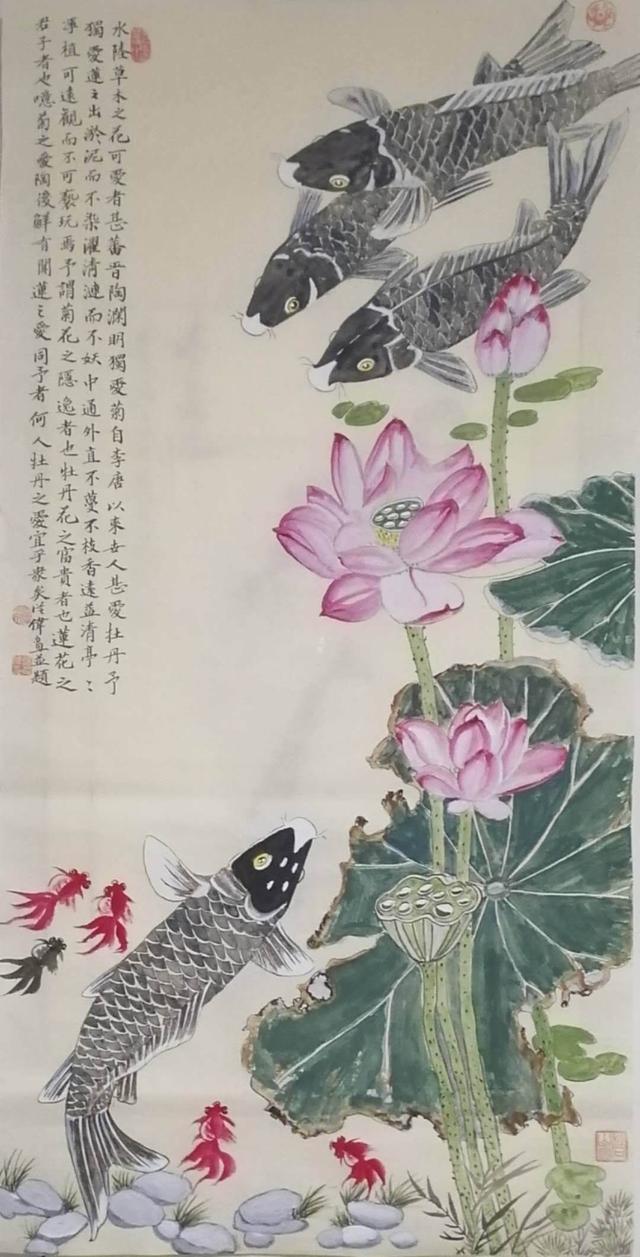 水陸草木之花可愛者甚蕃晋陶渊明獨愛菊自李唐以來世人甚愛牡丹予
獨愛蓮之出淤泥而不染濯清漣而不妖中通外直不蔓不枝香遠益清亭〻
淨植可遠觀而不可褻玩焉予謂菊花之隱逸者也牡丹花之富貴者也蓮花之
君子者也噫菊之愛陶後鮮有聞蓮之愛同予者何人牡丹之愛宜乎衆矣偉畫並題